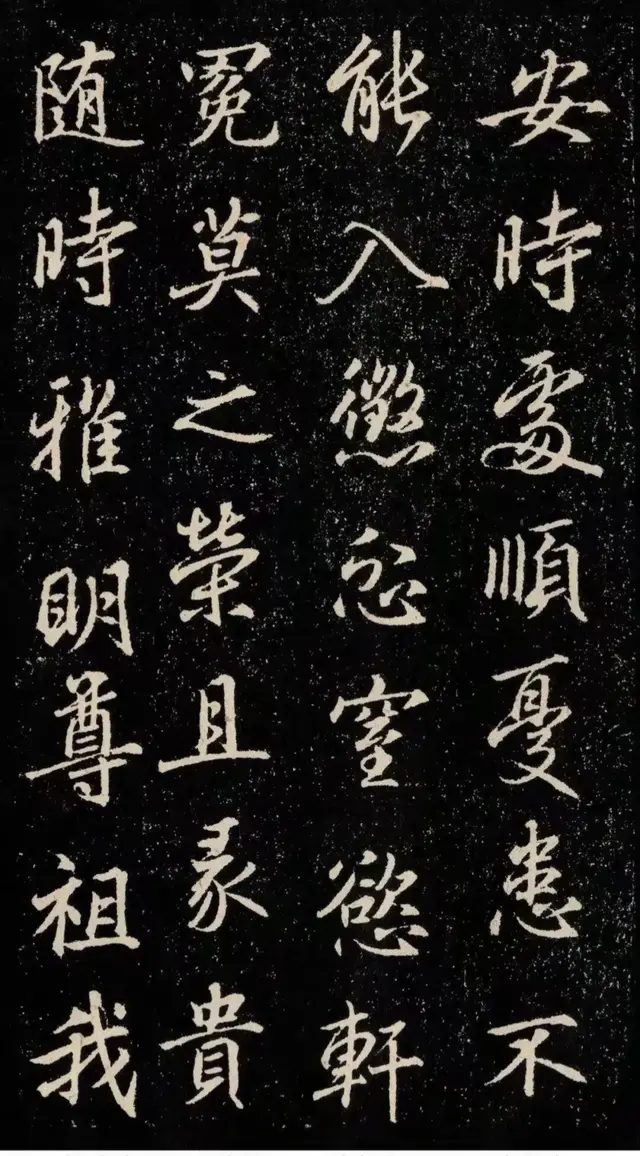 安時處順憂患不
能入懲忿窒慾軒
冕莫之榮且彖貴
随時雅明尊祖我